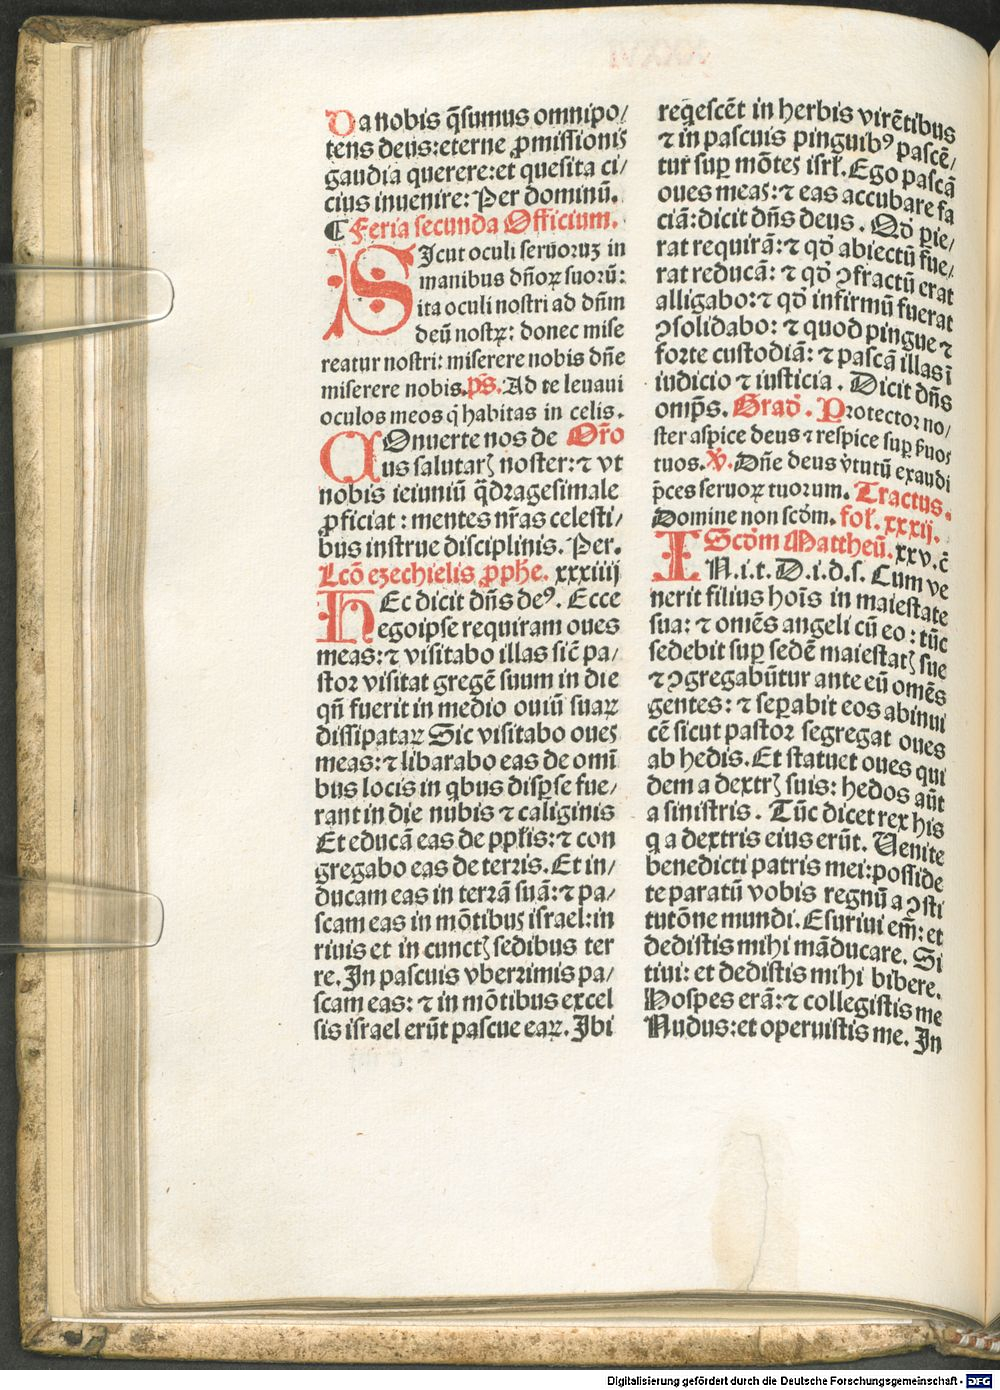 Da nobis q̄sumus omnipo/
tens deus:eterne ꝓmissionis
gaudia querere:et quesita ci/
cius inuenire: Per dominū.
¶ Feria secunda Officium.
SIcut oculi seruoruꝫ in
manibus dn̄oꝝ suorū:
ita oculi nostri ad dn̄m
deū nostꝝ: donec mise
reatur nostri: miserere nobis dn̄e
miserere nobis.ps̄. Ad te leuaui
oculos meos q̄ habitas in celis.
COnuerte nos de Oro
us salutarꝭ noster:⁊ vt
nobis ieiuniū q̄dragesimale
ꝓficiat : mentes nr̄as celesti/
bus instrue disciplinis. Per.
Lcō ezechielis ꝓphe. xxxiiij
HEc dicit dn̄s deꝰ. Ecce
egoipse requiram oues
meas:⁊ visitabo illas sic̄ pa/
stor visitat gregē suum in die
qn̄ fuerit in medio ouiū suaꝝ
dissipataꝝ Sic visitabo oues
meas:⁊ libarabo eas de omī
bus locis in qbus disꝑse fue/
rant in die nubis ⁊ caliginis
Et educā eas de ppl̄is:⁊ con
gregabo eas de terris. Et in/
ducam eas in terrā suā:⁊ pa/
scam eas in mōtibus israel:in
riuis et in cunctꝭ sedibus ter
re. In pascuis vberrimis pa/
scam eas: ⁊ in mōtibus excel
sis israel erūt pascue eaꝝ. Ibi
reqescēt in herbis virētibus
⁊ in pascuis pinguibꝰ pascē/
tur suꝑ mōtes isrl̄. Ego pascā
oues meas:⁊ eas accubare fa
ciā:dicit dn̄s deus. Qđ pie/
rat requirā:⁊ qđ abiectū fue/
rat reducā: ⁊ qđ ꝯfractū erat
alligabo:⁊ qđ infirmū fuerat
ꝯsolidabo: ⁊ quod pingue ⁊
forte custodiā: ⁊ pascā illas ī
iudicio ⁊ iusticia. Dicit dn̄s
omp̄s. Grad̄. Protector no/
ster aspice deus ⁊ respice suꝑ ẜuos
tuos. ℣. Dn̄e deus v̓tutū exaudi
p̄ces seruoꝝ tuorum. Tractus.
Domine non scđm. fol̄. xxxij.
Scđm Mattheū. xxv. c̄
IN.i.t.D.i.d.s. Cum ve
nerit filius hoīs in maiestate
sua: ⁊ omēs angeli cū eo : tūc
sedebit suꝑ sedē maiestatꝭ sue
⁊ ꝯgregabūtur ante eū omēs
gentes: ⁊ seꝑabit eos abinui
cē sicut pastor segregat oues
ab hedis. Et statuet oues qui
dem a dextrꝭ suis: hedos aūt
a sinistris. Tūc dicet rex his
q a dextris eius erūt. Venite
benedicti patris mei:posside
te paratū vobis regnū a ꝯsti
tutōne mundi. Esuriui em̄: et
dedistis mihi māducare. Si
tiui: et dedistis mihi bibere.
Hospes erā:⁊ collegistis me
Nudus:et operuistis me. In
Digitalisierung gefördert durch die Deutsche Forschungsgemeinschaft - DFG